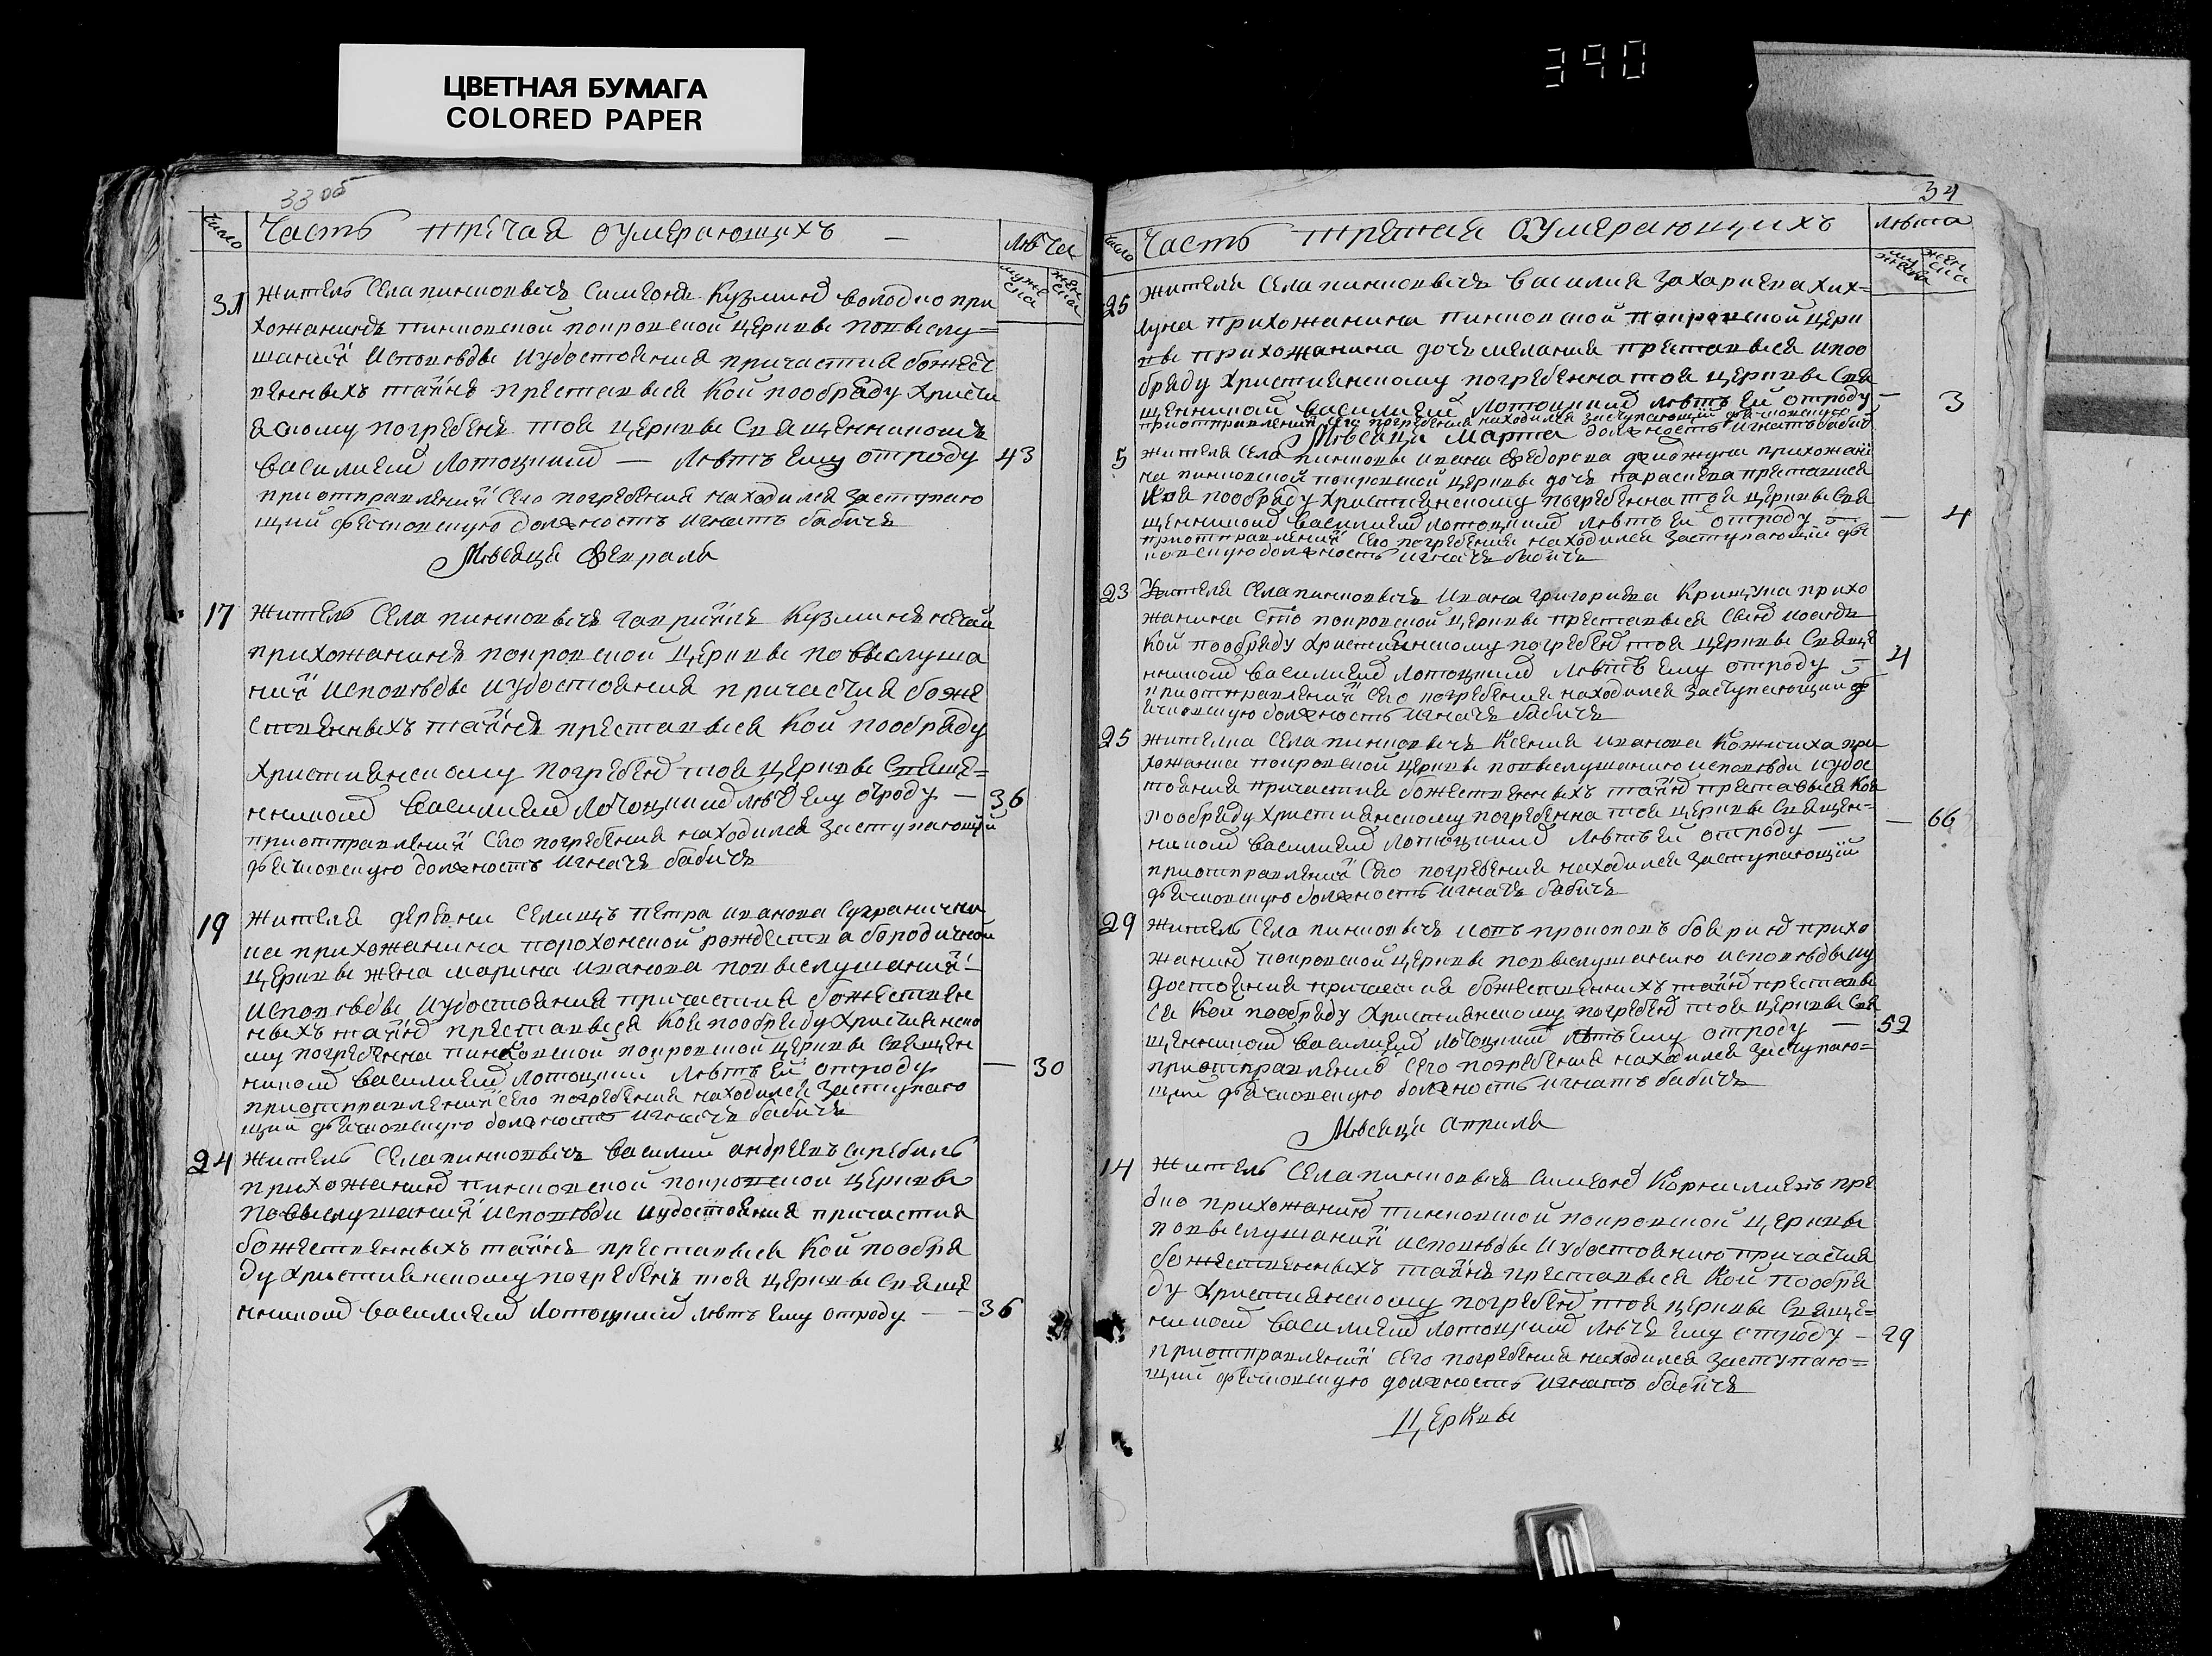 ЦВЕТНАЯ БУМАГА
COLORED PAPER
390
33 об
число
Часть третая оумерающихъ —
лѣта
муже ска
жен ска
31
Житель села пинковичъ Симеонъ Кузминъ володко при
хожанинъ пинковской покровской церкви по выслу=
шаний исповѣди и удостояния причастия божест
венныхъ тайнъ преставися кой по обряду христи
аскому погребенъ тоя церкви священникомъ
василиемъ Лотоцкимъ — лѣтъ ему отроду
43
при отправлений сего погребения находился заступаю
щий дячковскую должность игнатъ бабичъ
Мѣсяца Февраля
17
Житель села пинковичъ гавриилъ Кузминъ нечай
прихожанинъ покровской церкви по выслуша
ний исповѣди и удостояния причастия боже
ственныхъ тайнъ преставися кой по обряду
христианскому погребенъ тоя церкви свяще=
нникомъ василиемъ Лотоцкимъ лѣтъ ему отроду —
36
при отправлений сего погребения находился заступающий
дячковскую должность игнатъ бабичъ
19
Жителя деревни селищъ петра иванова
прихожанина пороховской рождества богородичной
церкви жена марина иванова по выслушаний
исповѣди и удостояния причастия божествен
ныхъ тайнъ преставися коя по обряду христианско
му погребенна пинковской покровской церкви священ
никомъ василиемъ Лотоцкимъ лѣтъ ей отроду
— 30
при отправлений сего погребения находился заступаю
щий дячковскую должность игнатъ бабичъ
24
Житель села пинковичъ василий андреевъ
прихожанинъ пинковской покровской церкви
по выслушаний исповѣди и удостояния причастия
божественныхъ тайнъ преставися кой по обря
ду христианскому погребенъ тоя церкви свяще
нникомъ василиемъ Лотоцкимъ лѣтъ ему отроду —
— 36
34
число
Часть третая оумерающихъ
лѣта
муж ска
жен ска
25
жителя села пинковичъ василия захариева хих=
луча прихожанина пинковской покровской церк
ви прихожанина дочь мелания преставися и по о
бряду христианскому погребенна тоя церкви свя
щенникомъ василиемъ Лотоцкимъ лѣтъ ей отроду
— 3
при отправлений сего погребения находился заступающий дячковскую
Мѣсяца Марта
должность игнатъ бабич
5
жителя села пинкович ивана федорова прихожани
на пинковской покровской церкви дочь параскева преставися
коя по обряду христианскому погребенна тоя церкви свя
щенникомъ василиемъ Лотоцкимъ лѣтъ ей отроду —
— 4
при отправлений сего погребения находился заступающий дя
чковскую должность игнатъ бабичъ
23
Жителя села пинковичъ ивана григориева Крищука прихо
жанина сто покровской церкви преставися сынъ иоаннъ
кой по обряду христианскому погребенъ тоя церкви свяще
нникомъ василиемъ Лотоцкимъ лѣтъ ему отроду —
4
при отправлений сего погребения находился заступающий д
ячковскую должность игнатъ бабичъ
25
жителка села пинковичъ Ксения иванова при
хожанка покровской церкви по выслушанию исповѣди и удос
тояния причастия божественныхъ тайнъ преставися коя
по обряду христианскому погребенна тоя церкви священ=
никомъ василиемъ Лотоцкимъ лѣтъ ей отроду —
— 66
при отправлений сего погребения находился заступающий
дячковскую должность игнатъ бабичъ
29
Житель села пинковичъ иовъ прокоповъ бояринъ прихо
жанинъ покровской церкви по выслушанию исповѣди и у
достояния причастия божественныхъ тайнъ преставы
ся кой по обряду христианскому погребенъ тоя церкви свя
щенникомъ василиемъ лотоцкимъ лѣтъ ему отроду —
52
при отправлений сего погребения находился заступаю=
щий дячковскую должность игнатъ бабичъ
Мѣсяца априля
14
Житель села пинковичъ Симеонъ Корнилиевъ
прихожанинъ пинковской покровской церкви
по выслушаний исповѣди и удостоянию причастия
божественныхъ тайнъ преставися кой по обря
ду христианскому погребенъ тоя церкви свяще=
никомъ василиемъ лотоцкимъ лѣтъ ему отроду —
29
при отправлений сего погребения находился заступаю=
щий дячковскую должность игнатъ бабичъ
Церкви